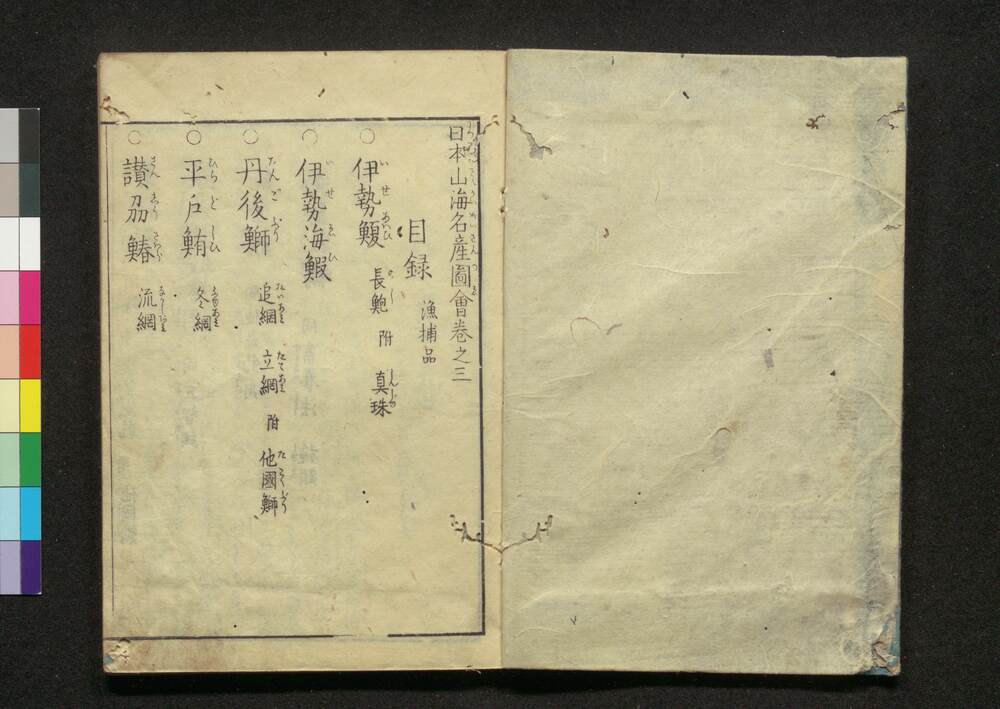 日本山海名産圖會巻之三
目録　漁捕品
○伊勢鰒　長鮑　附　真珠
○伊勢海鰕
○丹後鰤　追網　立網　附　他國鰤
○平戸鮪　冬網
○讃刕鰆　流網